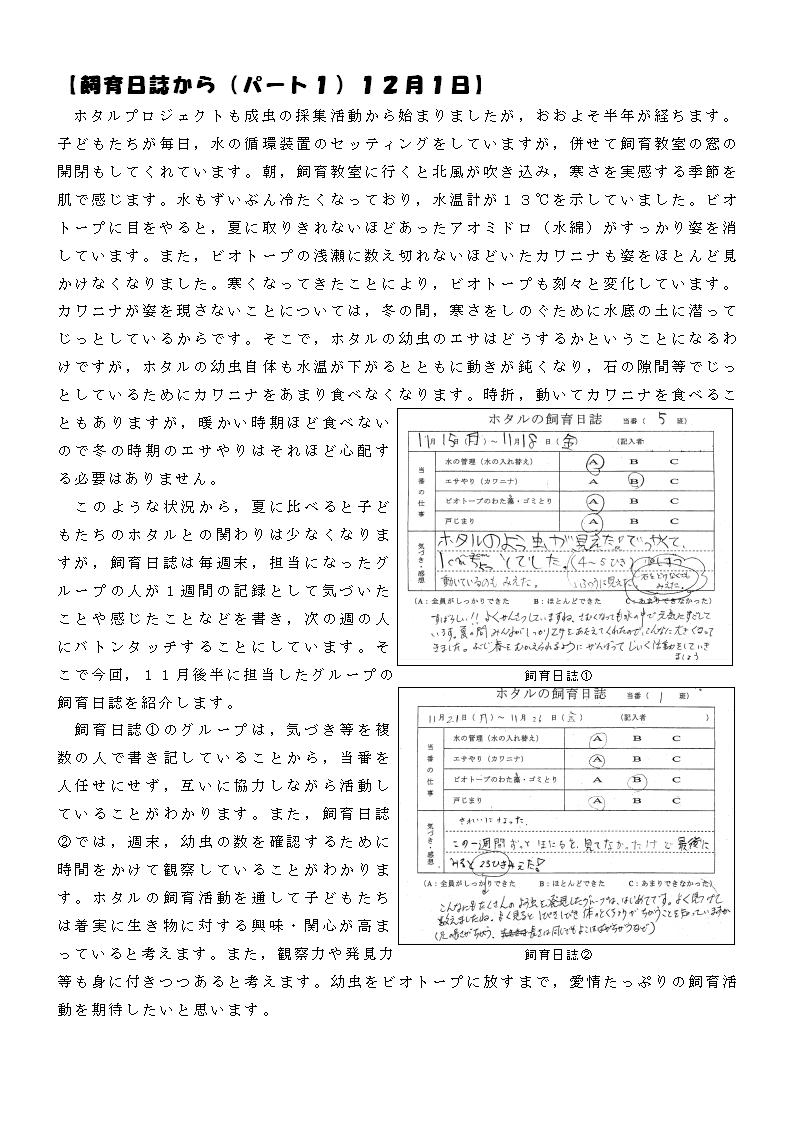 【飼育日誌から（パート１）１２月１日】
ホタルプロジェクトも成虫の採集活動から始まりましたが，おおよそ半年が経ちます。
子どもたちが毎日，水の循環装置のセッティングをしていますが，併せて飼育教室の窓の
開閉もしてくれています。朝，飼育教室に行くと北風が吹き込み，寒さを実感する季節を
肌で感じます。水もずいぶん冷たくなっており，水温計が１３℃を示していました。ビオ
トープに目をやると，夏に取りきれないほどあったアオミドロ（水綿）がすっかり姿を消
しています。また，ビオトープの浅瀬に数え切れないほどいたカワニナも姿をほとんど見
かけなくなりました。寒くなってきたことにより，ビオトープも刻々と変化しています。
カワニナが姿を現さないことについては，冬の間，寒さをしのぐために水底の土に潜って
じっとしているからです。そこで，ホタルの幼虫のエサはどうするかということになるわ
けですが，ホタルの幼虫自体も水温が下がるとともに動きが鈍くなり，石の隙間等でじっ
としているためにカワニナをあまり食べなくなります。時折，動いてカワニナを食べるこ
ともありますが，暖かい時期ほど食べない
ので冬の時期のエサやりはそれほど心配す
る必要はありません。
このような状況から，夏に比べると子ど
もたちのホタルとの関わりは少なくなりま
すが，飼育日誌は毎週末，担当になったグ
ループの人が１週間の記録として気づいた
ことや感じたことなどを書き，次の週の人
にバトンタッチすることにしています。そ
こで今回，１１月後半に担当したグループの
飼育日誌を紹介します。
飼育日誌①のグループは，気づき等を複
数の人で書き記していることから，当番を
人任せにせず，互いに協力しながら活動し
ていることがわかります。また，飼育日誌
②では，週末，幼虫の数を確認するために
時間をかけて観察していることがわかりま
す。ホタルの飼育活動を通して子どもたち
は着実に生き物に対する興味・関心が高ま
っていると考えます。また，観察力や発見力
等も身に付きつつあると考えます。幼虫をビオトープに放すまで，愛情たっぷりの飼育活
動を期待したいと思います。
ホタルの飼育日誌 当番（ 5 班）
11月15日（月）～11月18日（金） （記入者
当番の仕事
水の管理（水の入れ替え） A B C
エサやり（カワニナ） A B C
ビオトープのわた藻・ゴミとり A B C
戸じまり A B C
気づき・感想
ホタルのよう虫が見えた！でっかくて、
とでした。（4～5ひき
動いているのもみえた。
石をどけなくても
みえた。
（A：全員がしっかりできた B：ほとんどできた C：あまりできなかった）
すばらしい！！よくかんさつしていますね。さむくなっても水の中で元気にすごして
います。夏の間みんながしっかりエサをあたえてくれたので、こんなに大きくなって
きました。ぶじ春をむかえられるようにがんばってしいく活動をしていき
ましょう
飼育日誌①
ホタルの飼育日誌 当番（ 1 班）
11月21日（月）～11月26日（金） （記入者 ）
当番の仕事
水の管理（水の入れ替え） A B C
エサやり（カワニナ） A B C
ビオトープのわた藻・ゴミとり A B C
戸じまり A B C
気づき・感想
きれいになった。
この一週間ずっとほたるを、見てなかったけど最後に
みると23ひきみえた！
（A：全員がしっかりできた B：ほとんどできた C：あまりできなかった）
こんなにもたくさんのよう虫を発見したグループは、はじめてです。よく見つけて
数えましたね。よく見ると1ぴき1ぴき体のとくちょうがちがうことを知っていますか
飼育日誌②